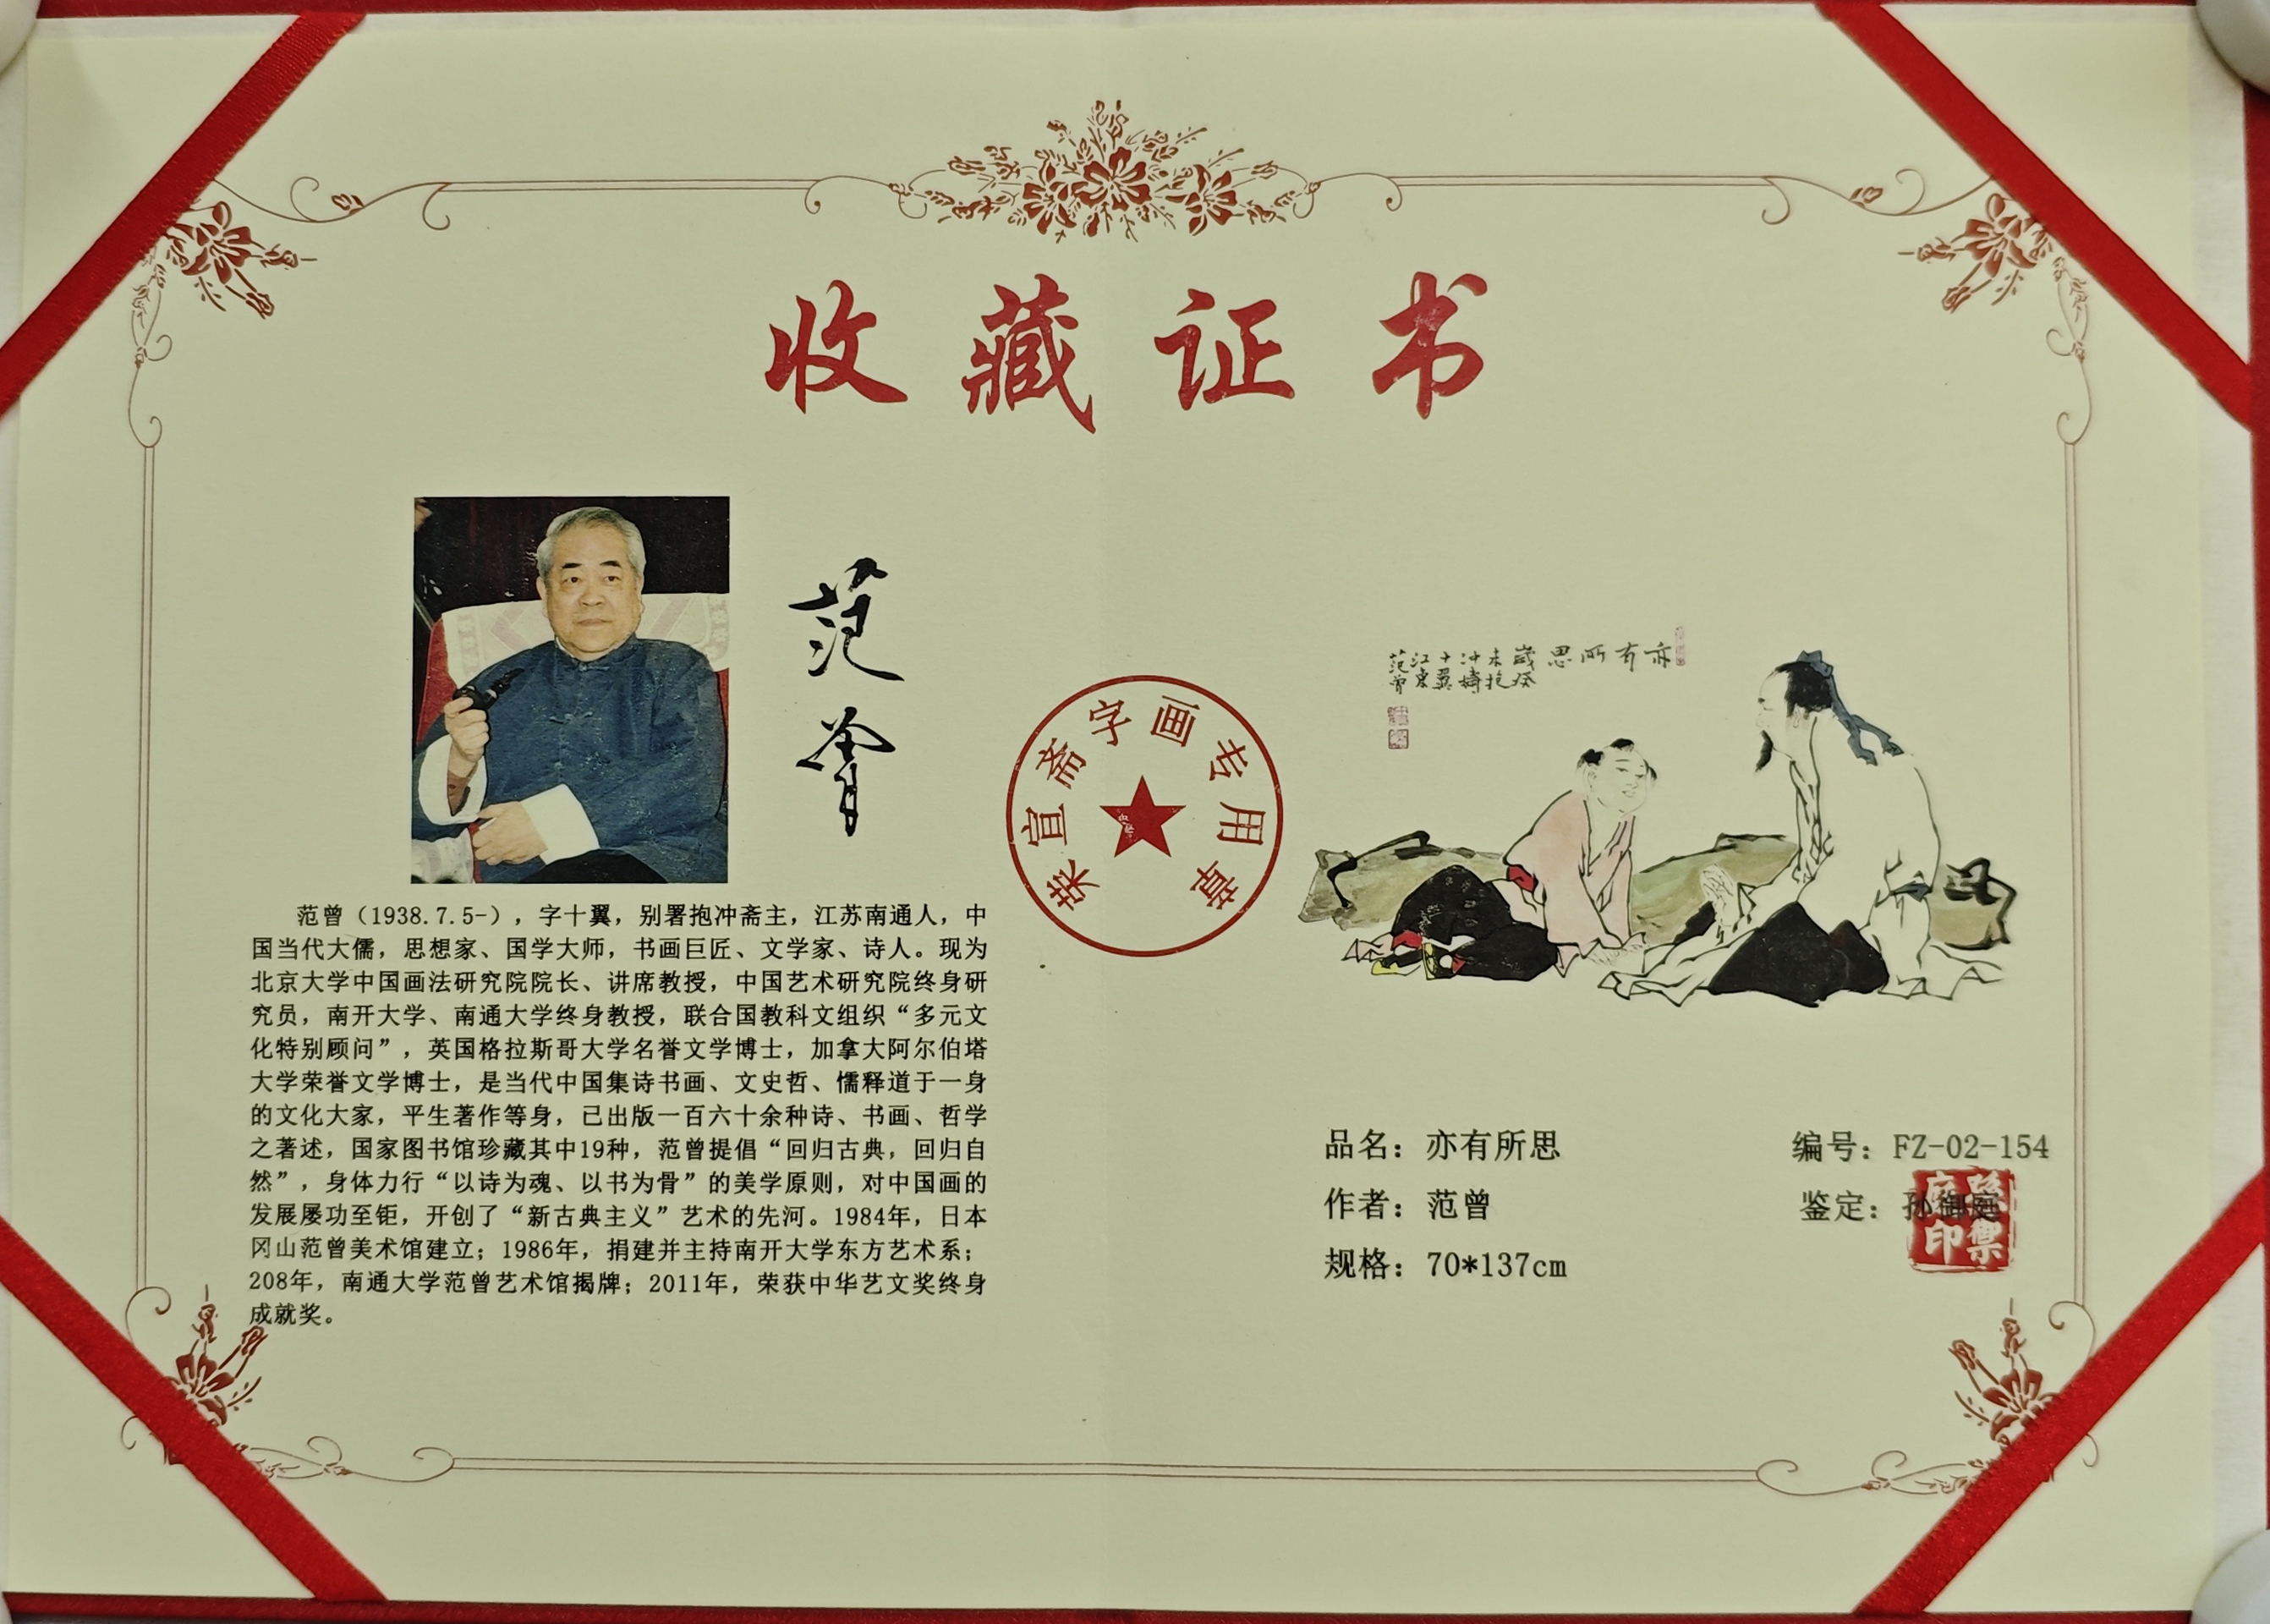 收藏证书
范曾
范曾（1938.7.5-），字十翼，别署抱冲斋主，江苏南通人，中
国当代大儒，思想家、国学大师，书画巨匠、文学家、诗人。现为
北京大学中国画法研究院院长、讲席教授，中国艺术研究院终身研
究员，南开大学、南通大学终身教授，联合国教科文组织“多元文
化特别顾问”，英国格拉斯哥大学名誉文学博士，加拿大阿尔伯塔
大学荣誉文学博士，是当代中国集诗书画、文史哲、儒释道于一身
的文化大家，平生著作等身，已出版一百六十余种诗、书画、哲学
之著述，国家图书馆珍藏其中19种，范曾提倡“回归古典，回归自
然”，身体力行“以诗为魂、以书为骨”的美学原则，对中国画的
发展屡功至钜，开创了“新古典主义”艺术的先河。1984年，日本
冈山范曾美术馆建立；1986年，捐建并主持南开大学东方艺术系；
208年，南通大学范曾艺术馆揭牌；2011年，荣获中华艺文奖终身
成就奖。
荣宣斋字画专用章
亦有所思
歲癸
未抱
冲
十翼
江東
范曾
品名：亦有所思
作者：范曾
规格：70*137cm
编号：FZ-02-154
鉴定：孙御庭